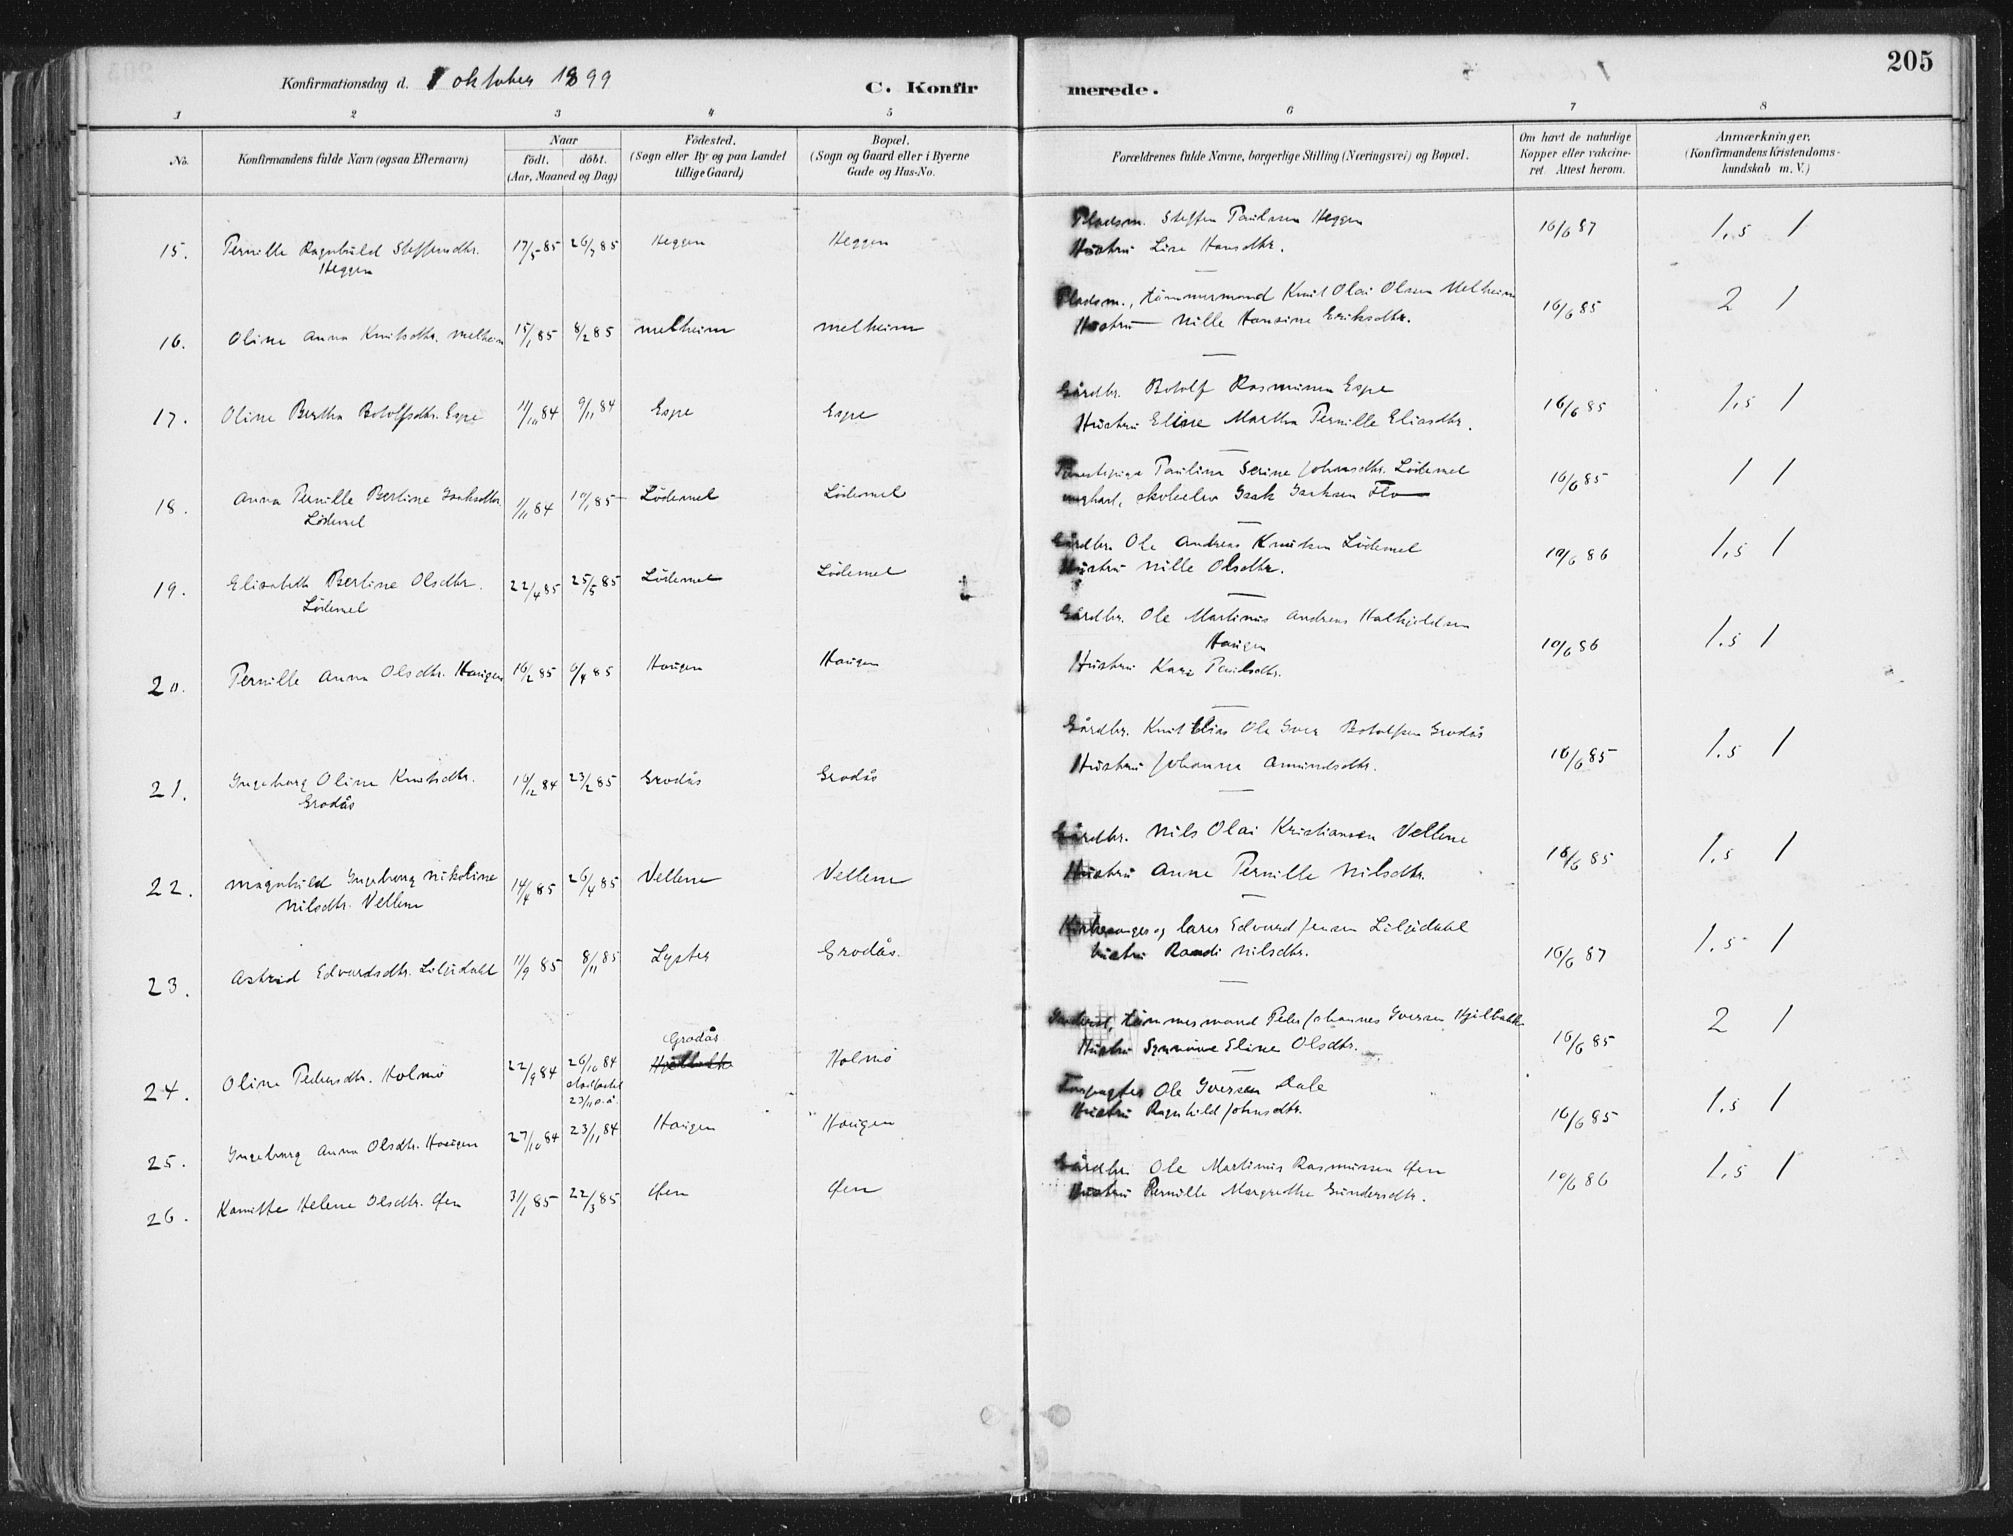 205
Konfirmationsdag d. 1 oktober 1899
C. Konfirmerede.
1 2 3 4 5 6 7 8
No.
Konfirmandens fulde Navn (ogsaa Efternavn)
Naar
født. døbt.
(Aar, Maaned og Dag)
Fødested.
(Sogn eller By og paa Landet
tillige Gaard)
Bopæl.
(Sogn og Gaard eller i Byerne
Gade og Hus-No.
Forældrenes fulde Navne, borgerlige Stilling (Næringsvei) og Bopæl.
Om havt de naturlige
Kopper eller vakcine-
ret. Attest herom.
Anmærkninger.
(Konfirmandens Kristendoms-
kundskab m. V.)
15. Pernille Ragnhild Steffensdtr. 17/5 85 26/7 85 Heggen Heggen
Heggen
Pladsm. Steffen Paulsen Heggen 16/6 87 1,5 1
Hustru Lise Hansdtr.
16. Oline Anna Knutsdtr. Melheim 15/1 85 8/2 85 Melheim Melheim
Pladsm., tømmermand Knut Olai Olsen Melheim 16/6 85 2 1
Hustru Nille Hansine Eriksdtr.
17. Oline Bertha Botolfsdtr. Espe 11/10 84 9/11 84 Espe Espe
Gårdbr. Botolf Rasmussen Espe 16/6 85 1,5 1
Hustru Eline Martha Pernille Eliasdtr.
18. Anna Pernille Bertine Isaksdtr. 1/11 84 10/1 85 Lødemel Lødemel
Lødemel
Tjenestepige Pauline Serine Johnsdtr. Lødemel 16/6 85 1 1
ungkarl, skoleelev Isak Isaksen Flo
19. Elisabeth Bertine Olsdtr. 22/4 85 25/5 85 Lødemel Lødemel
Lødemel
Gårdbr. Ole Andreas Knutsen Lødemel 10/6 86 1,5 1
Hustru Nille Olsdtr.
20. Pernille Anna Olsdtr. Haugen 16/2 85 6/4 85 Haugen Haugen
Gårdbr. Ole Martinus Andreas Halkjeldsen
Haugen 10/6 86 1.5 1
Hustru Kari Paulsdtr.
21. Ingeborg Oline Knutsdtr. 16/12 84 23/2 85 Grodås Grodås
Grodås
Gårdbr. Knut Elias Ole Iver Botolfsen Grodås 16/6 85 1.5 1
Hustru Johanne Amundsdtr.
22. Magnhild Ingeborg Nikoline 14/4 85 26/4 85 Vellene Vellene
Nilsdtr. Vellene
Gårdbr. Nils Olai Kristiansen Vellene 16/6 85 1,5 1
Hustru Anne Pernille Nilsdtr.
23. Astrid Edvardsdtr. Liljedahl 11/9 85 8/11 85 Lyster Grodås.
Kirkesanger og lærer Edvard Jensen Liljedahl 16/6 87 1.5 1
hustru Randi Nilsdtr.
24. Oline Pedersdtr. Holmø 22/9 84 26/10 84 Grodås Holmø
stadfestet
23/11 s. å.
tømmermand Peder Johannes Iversen Hjelbakke 16/6 85 2 1
Hustru Synnøve Eline Olsdtr.
25. Ingeborg Anna Olsdtr. Haugen 27/10 84 23/11 84 Haugen Haugen
Forpagter Ole Iversen Dale 16/6 85 1,5 1
Hustru Ragnhild Johnsdtr.
26. Kamitte Helene Olsdtr. Øen 31/1 85 22/3 85 Øen Øen
Gårdbr. Ole Martinus Rasmussen Øen 10/6 86 1,5 1
Hustru Pernille Margrethe Gundersdtr.